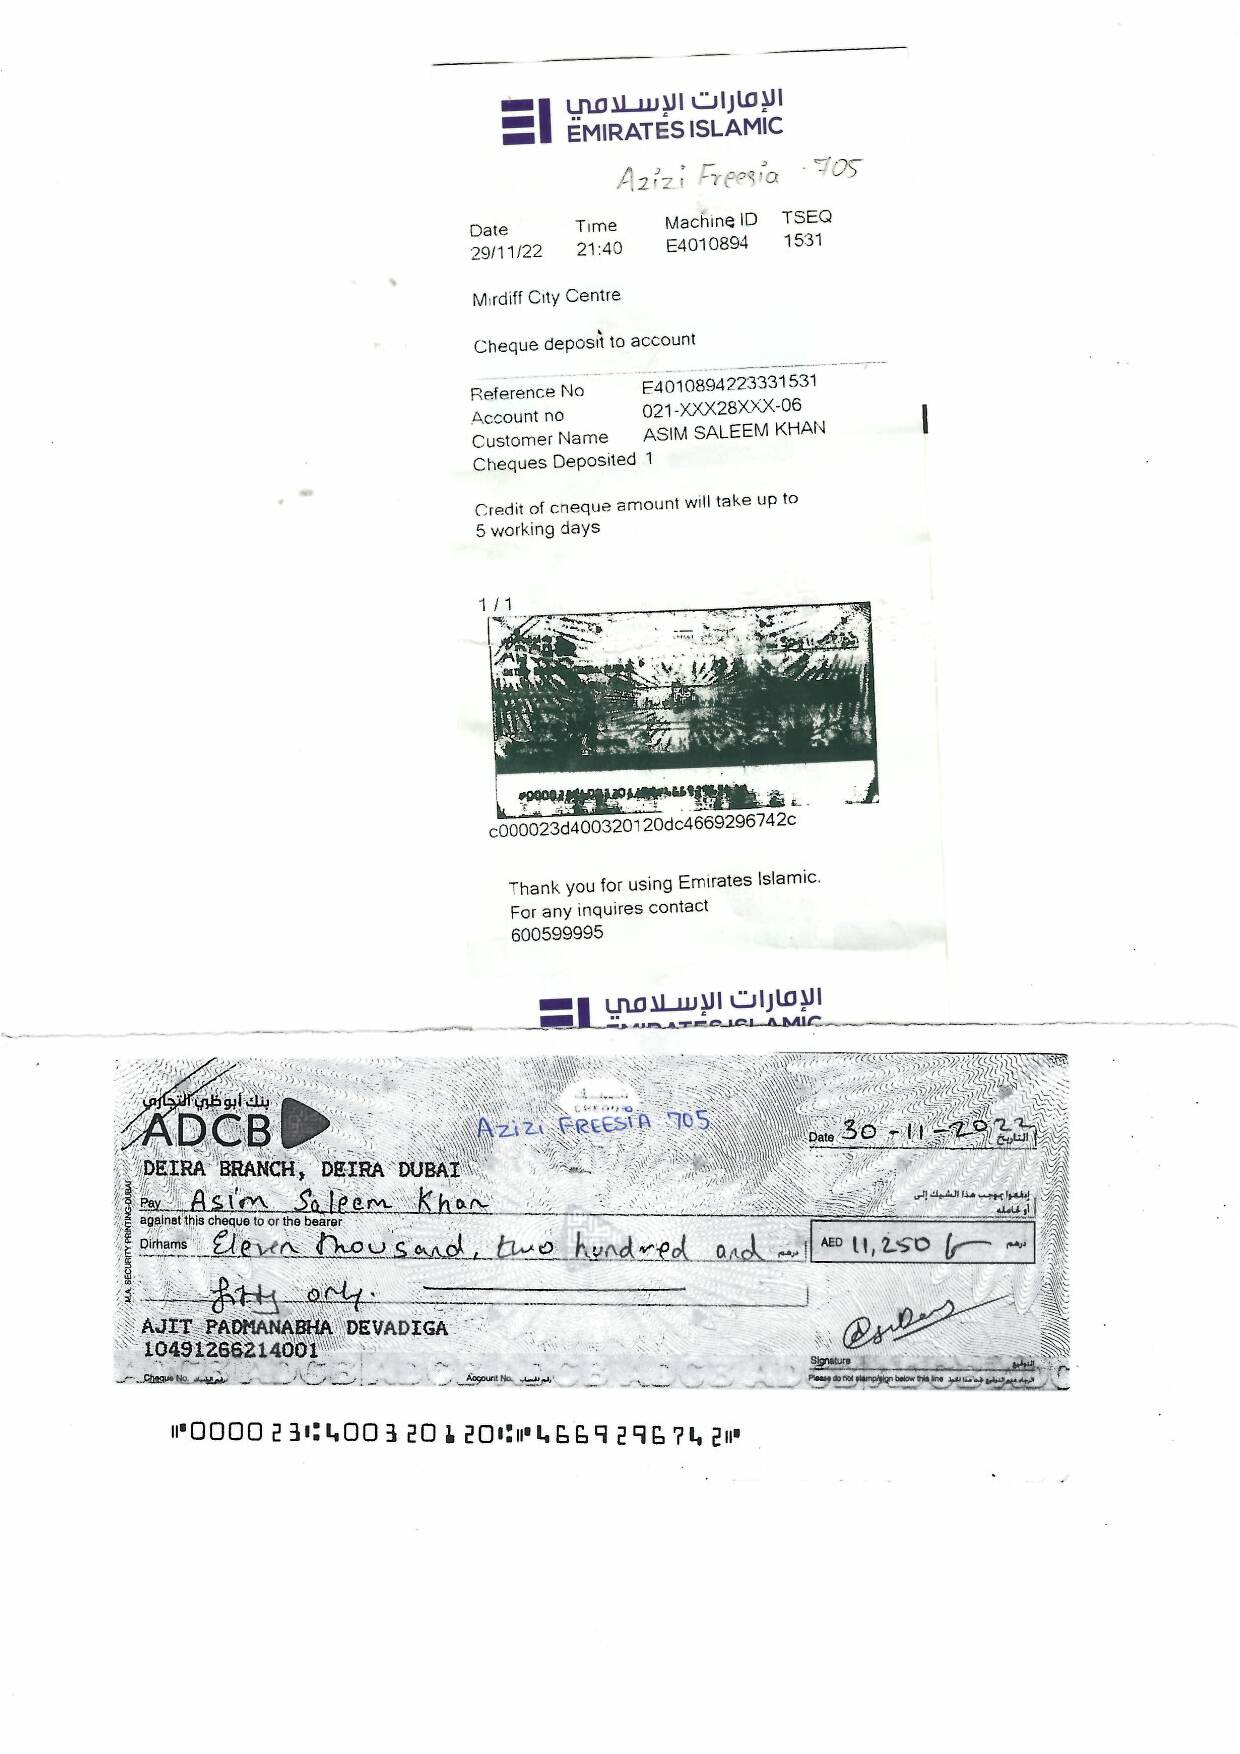 الإمارات الإسلامي
EMIRATES ISLAMIC
Azizi Freesia - 705
Date Time Machine ID TSEQ
29/11/22 21:40 E4010894 1531
Mirdiff City Centre
Cheque deposit to account
Reference No E4010894223331531
Account no 021-XXX28XXX-06
Customer Name ASIM SALEEM KHAN
Cheques Deposited 1
Credit of cheque amount will take up to
5 working days
1 / 1
c000023d400320120dc4669296742c
Thank you for using Emirates Islamic.
For any inquires contact
600599995
الإمارات الإسلامي
EMIRATES ISLAMIC
بنك أبوظبي التجاري
ADCB
AZIZI FREESIA 705
Date 30-11-2022 التاريخ
DEIRA BRANCH, DEIRA DUBAI
Pay Asim Saleem Khan إدفعوا بموجب هذا الشيك إلى
against this cheque to or the bearer أو لحامله
Dirhams Eleven Thousand, two hundred and درهم AED 11,250/- درهم
fifty only.
AJIT PADMANABHA DEVADIGA
10491266214001
Signature التوقيع
Cheque No. رقم الشيك Account No. رقم الحساب Please do not stamp/sign below this line
M.A. SECURITY PRINTING-DUBAI
⑈000023⑆400320120⑆⑈4669296742⑈